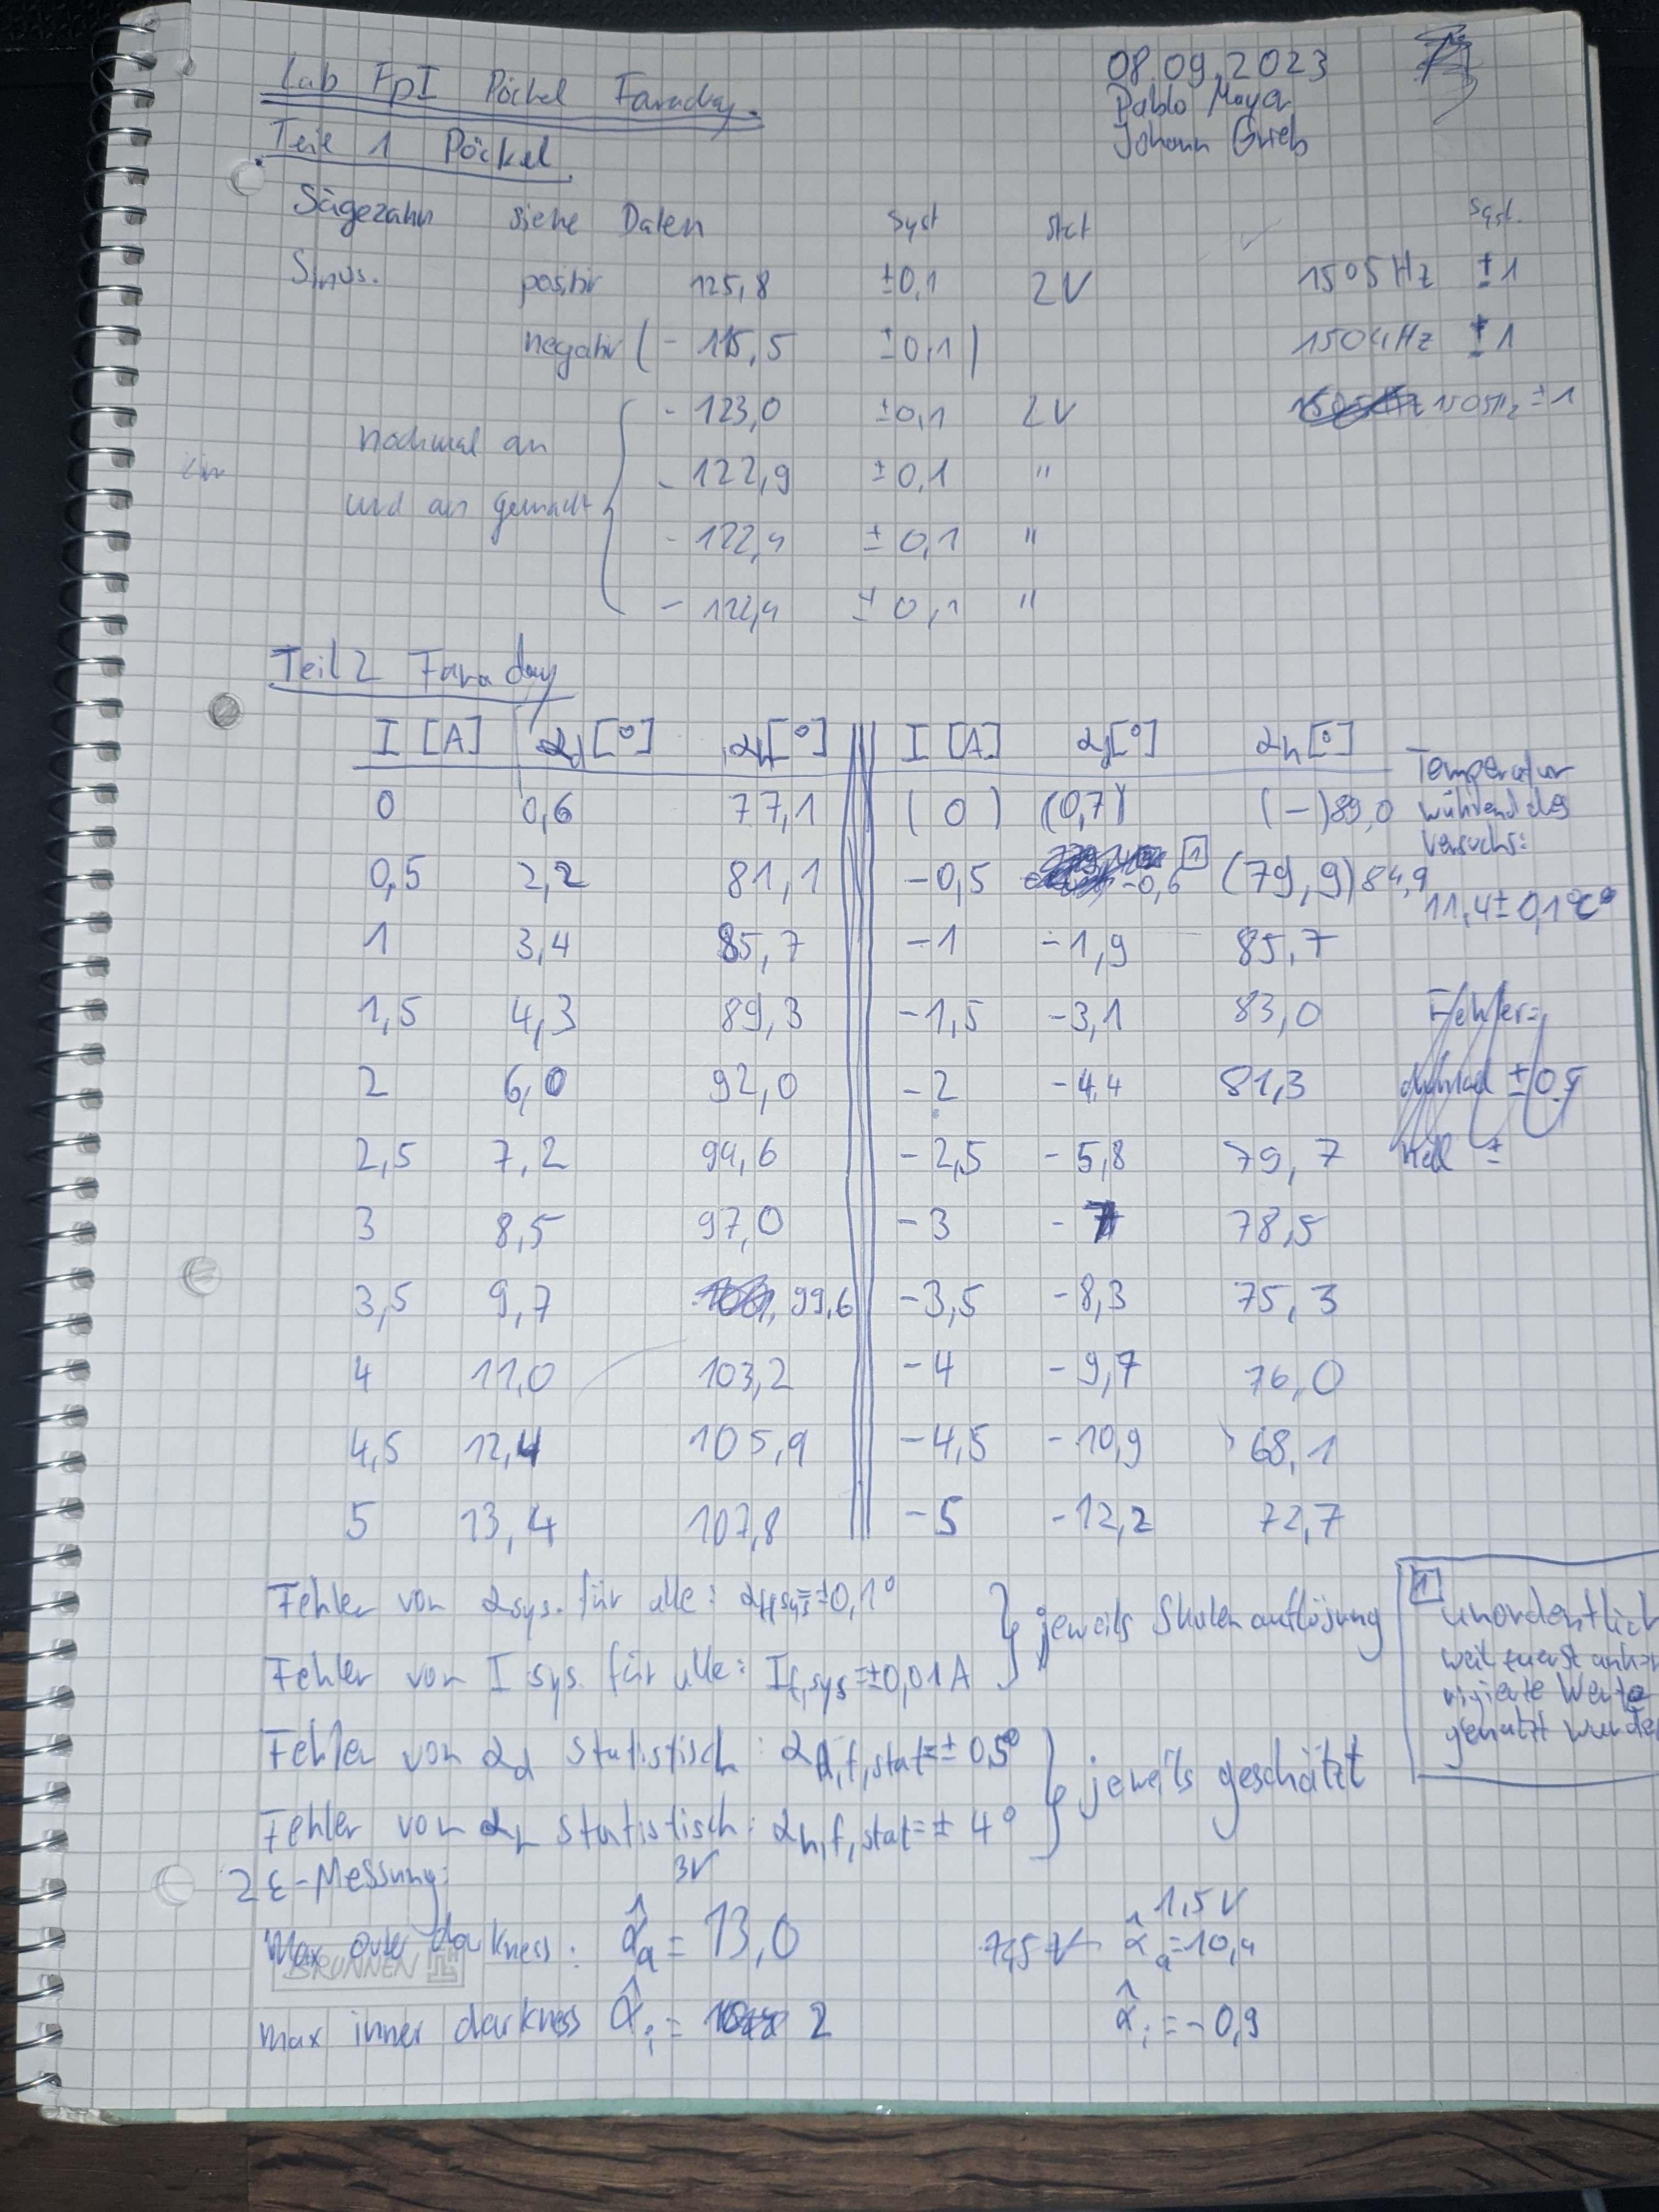 08.09.2023
Lab FpI Pöckel Faraday.
Pablo Mayer
Johann Grieb
Teil 1 Pöckel
Sägezahn siehe Daten syst stat syst.
Sinus. positiv 125,8 ±0,1 2V 1505Hz ±1
negativ (- 115,5 ±0,1) 1504Hz ±1
- 123,0 ±0,1 2V 1505Hz ±1
nochmal an - 122,9 ±0,1 "
und aus gemacht - 122,4 ±0,1 "
- 122,4 ±0,1 "
Teil 2 Faraday
I [A] αd[°] αh[°] I [A] αd[°] αh[°]
0 0,6 77,1 (0) (0,7) (-)89,0
0,5 2,2 81,1 -0,5 -0,6 [1] (79,9) 84,9
1 3,4 85,7 -1 -1,9 85,7
1,5 4,3 89,3 -1,5 -3,1 83,0
2 6,0 92,0 -2 -4,4 81,3
2,5 7,2 94,6 -2,5 -5,8 79,7
3 8,5 97,0 -3 -7 78,5
3,5 9,7 99,6 -3,5 -8,3 75,3
4 11,0 103,2 -4 -9,7 76,0
4,5 12,4 105,9 -4,5 -10,9 68,1
5 13,4 107,8 -5 -12,2 72,7
Temperatur
während des
Versuchs:
11,4±0,1°C
Fehler von α sys. für alle: αf,sys=±0,1°
Fehler von I sys. für alle: If,sys=±0,01A
} jeweils Skalenauflösung
Fehler von αd statistisch: αd,f,stat=±0,5°
Fehler von αh statistisch: αh,f,stat=±4°
} jeweils geschätzt
[1] unordentlich
weil zuerst
Werte
genutzt wurden
2ε-Messung:
3V 1,5V
Max outer darkness: α̂a = 13,0 α̂a=10,4
BRUNNEN
max inner darkness α̂i = 2 α̂i=-0,9